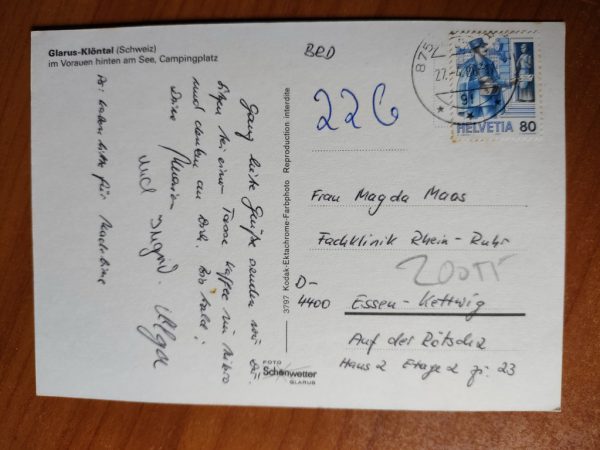 Glarus-Klöntal (Schweiz)
im Vorauen hinten am See, Campingplatz
BRD
226
875
27.-4.
HELVETIA 80
Ganz liebe Grüße senden wir Dir.
sitzen bei einer Tasse Kaffee im
und denken an Dich. Bis bald!
Deine
und Ingrid. Helga
bitte für Madeleine
3797 Kodak-Ektachrome-Farbphoto Reproduction interdite
FOTO
Schönwetter
GLARUS
Frau Magda Maas
Fachklinik Rhein-Ruhr
D-
4400 Essen-Kettwig
Auf der Rötsch 2
Haus 2 Etage 2 Zi. 23